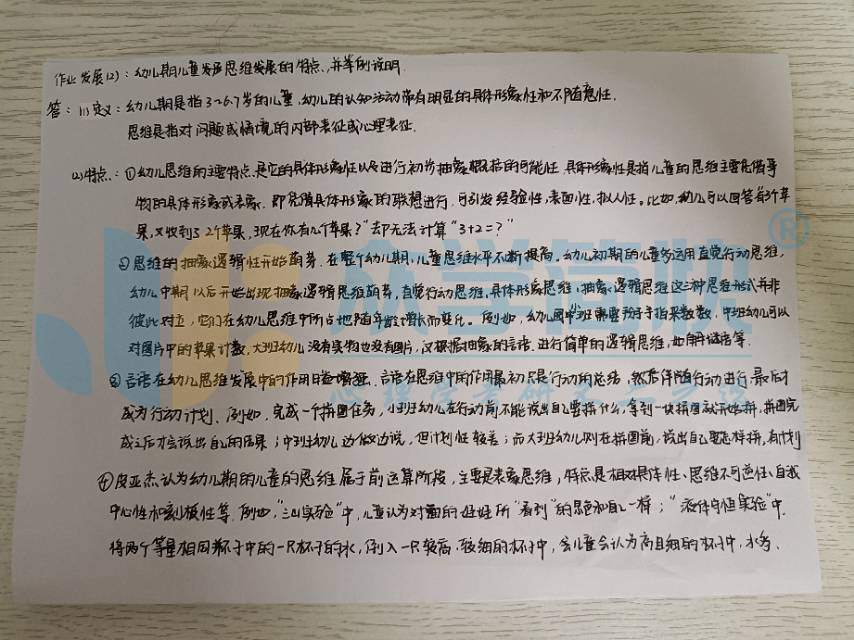 作业 发展(2):幼儿期儿童发展思维发展的特点,并举例说明.
答:(1)定义:幼儿期是指3~6、7岁的儿童.幼儿的认知活动带有明显的具体形象性和不随意性.
思维是指对问题或情境的内部表征或心理表征.
(2)特点:①幼儿思维的主要特点是它的具体形象性以及进行初步抽象概括的可能性.具体形象性是指儿童的思维主要凭借事
物的具体形象或表象.即凭借具体形象的联想进行.可引发经验性,表面性,拟人性.比如,幼儿可以回答"有3个苹
果,又收到了2个苹果,现在你有几个苹果?"却无法计算"3+2=?"
②思维的抽象逻辑性开始萌芽.在整个幼儿期,儿童思维水平不断提高.幼儿初期的儿童多运用直觉行动思维,
幼儿中期以后开始出现抽象逻辑思维萌芽,直觉行动思维,具体形象思维,抽象逻辑思维这三种思维形式并非
彼此对立,它们在幼儿思维中所占地随年龄增长而变化.例如,幼儿园中班需要扳手指来数数,中班幼儿可以
对图片中的苹果计数,大班幼儿没有实物也没有图片,仅根据抽象的言语.进行简单的逻辑思维,如解谜语等.
③言语在幼儿思维发展中的作用日益增强.言语在思维中的作用最初只是行动的总结,然后伴随行动进行,最后才
成为行动计划.例如,完成一个拼图任务,小班幼儿在行动前不能说出自己要拼什么,拿到一块拼图就开始拼,拼图完
成之后才会说出自己的结果;中班幼儿边做边说,但计划性较差;而大班幼儿则在拼图前,说出自己要怎样拼,有计划
④皮亚杰认为幼儿期的儿童的思维属于前运算阶段,主要是表象思维,特点是相对具体性、思维不可逆性、自我
中心性和刻板性等.例如,"三山实验"中,儿童认为对面的娃娃所"看到"的景色和自己一样;"液体守恒实验"中.
将两个等量相同杯子中的一只杯子的水,倒入一只较高、较细的杯子中,会儿童会认为高且细的杯子中,水多.
众学简快®
心理学考研不二之选